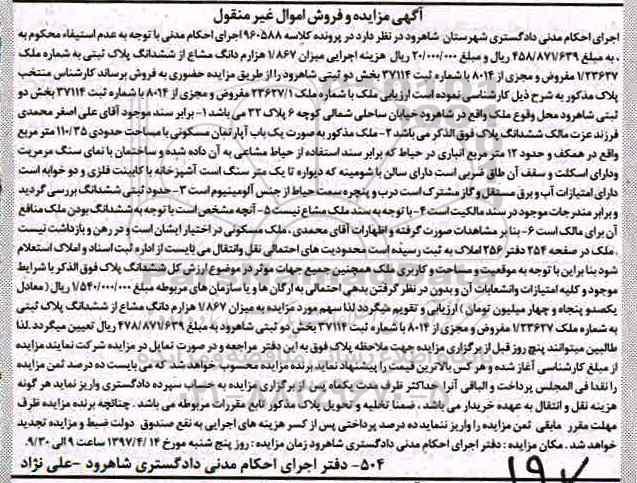 آگهی مزایده و فروش اموال غیر منقول
اجرای احکام مدنی دادگستری شهرستان شاهرود در نظر دارد در پرونده کلاسه ۹۶۰۵۸۸ اجرای احکام مدنی با توجه به عدم استیفاء محکوم به
، به مبلغ ۴۵۸/۸۷۱/۶۳۹ ریال و مبلغ ۲۰/۰۰۰/۰۰۰ ریال هزینه اجرایی میزان ۱/۸۶۷ هزارم دانگ مشاع از ششدانگ پلاک ثبتی به شماره ملک
۱/۲۳۶۲۷ مفروض و مجزی از ۸۰۱۴ با شماره ثبت ۳۷۱۱۴ بخش دو ثبتی شاهرود را از طریق مزایده حضوری به فروش برساند کارشناس منتخب
پلاک مذکور به شرح ذیل کارشناسی نموده است ارزیابی ملک با شماره ملک ۲۳۶۲۷/۱ مفروض و مجزی از ۸۰۱۴ با شماره ثبت ۳۷۱۱۴ بخش دو
ثبتی شاهرود محل وقوع ملک واقع در شاهرود خیابان ساحلی شمالی کوچه ۶ پلاک ۳۲ می باشد ۱- برابر سند موجود آقای علی اصغر محمدی
فرزند عزت مالک ششدانگ پلاک فوق الذکر می باشد ۲- ملک مذکور به صورت یک باب آپارتمان مسکونی با مساحت حدودی ۱۱۰/۳۵ متر مربع
واقع در همکف و حدود ۱۲ متر مربع انباری در حیاط که برابر سند استفاده از حیاط مشاعی به آن داده شده و ساختمان با نمای سنگ مرمریت
ودارای اسکلت و سقف آن طاق ضربی است دارای سالن با شومینه که دیواره تا یک متر سنگ است آشپزخانه با کابینت فلزی و دو خوابه است
دارای امتیازات آب و برق مستقل و گاز مشترک است درب و پنجره سمت حیاط از جنس آلومینیوم است ۳- حدود ثبتی ششدانگ بررسی گردید
و برابر مندرجات موجود در سند مالکیت است ۴- با توجه به سند ملک مشاع نیست ۵- آنچه مشخص است با توجه به ششدانگ بودن ملک منافع
آن برای مالک است ۶- بنا بر مشاهدات صورت گرفته و اظهارات آقای محمدی ، ملک مسکونی در اختیار ایشان است و در رهن و بازداشت نیست
. ملک در صفحه ۲۵۴ دفتر ۲۵۶ املاک به ثبت رسیده است محدودیت های احتمالی نقل وانتقال می بایست از اداره ثبت اسناد و املاک استعلام
شود بنا براین با توجه به موقعیت و مساحت و کاربری ملک همچنین جمیع جهات موثر در موضوع ارزش کل ششدانگ پلاک فوق الذکر با شرایط
موجود و کلیه امتیازات وانشعابات آن و بدون در نظر گرفتن بدهی احتمالی به ارگان ها و یا سازمان های مربوطه مبلغ ۱/۵۴۰/۰۰۰/۰۰۰ ریال (معادل
یکصدو پنجاه و چهار میلیون تومان ) ارزیابی و تقویم میگردد لذا سهم مورد مزایده به میزان ۱/۸۶۷ هزارم دانگ مشاع از ششدانگ پلاک ثبتی
به شماره ملک ۱/۲۳۶۲۷ مفروض و مجزی از ۸۰۱۴ با شماره ثبت ۳۷۱۱۴ بخش دو ثبتی شاهرود به مبلغ ۴۷۸/۸۷۱/۶۳۹ ریال تعیین میگردد .لذا
طالبین میتوانند پنج روز قبل از برگزاری مزایده جهت ملاحظه پلاک فوق به این دفتر مراجعه و در صورت تمایل در مزایده شرکت نمایند مزایده
از مبلغ کارشناسی آغاز شده و هر کس بالاترین قیمت را پیشنهاد نماید برنده مزایده محسوب خواهد شد که می بایست ده درصد ثمن مزایده
را نقدا فی المجلس پرداخت و الباقی آنرا حداکثر ظرف مدت یکماه پس از برگزاری مزایده به حساب سپرده دادگستری واریز نماید هر گونه
هزینه نقل و انتقال به عهده خریدار می باشد . ضمنا تخلیه و تحویل پلاک مذکور تابع مقررات مربوطه می باشد . چنانچه برنده مزایده ظرف
مهلت مقرر مابقی ثمن مزایده را واریز ننماید ده درصد پرداختی پس از کسر هزینه های اجرایی به نفع صندوق دولت ضبط و مزایده تجدید
خواهد شد . مکان مزایده : دفتر اجرای احکام مدنی دادگستری شاهرود زمان مزایده : روز پنج شنبه مورخ ۱۳۹۷/۴/۱۴ ساعت ۹ الی ۹/۳۰.
۵۰۴- دفتر اجرای احکام مدنی دادگستری شاهرود -علی نژاد
۱۹۷